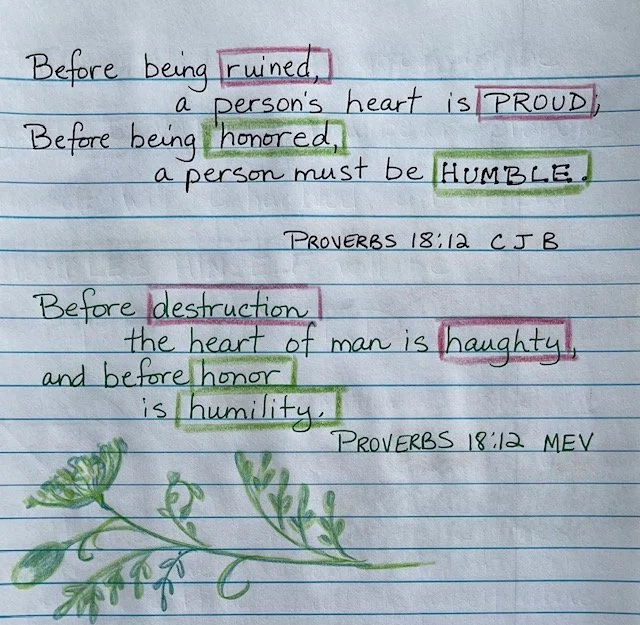 Before being ruined,
a person's heart is PROUD,
Before being honored,
a person must be HUMBLE.
PROVERBS 18:12 CJB
Before destruction
the heart of man is haughty,
and before honor
is humility.
PROVERBS 18:12 MEV